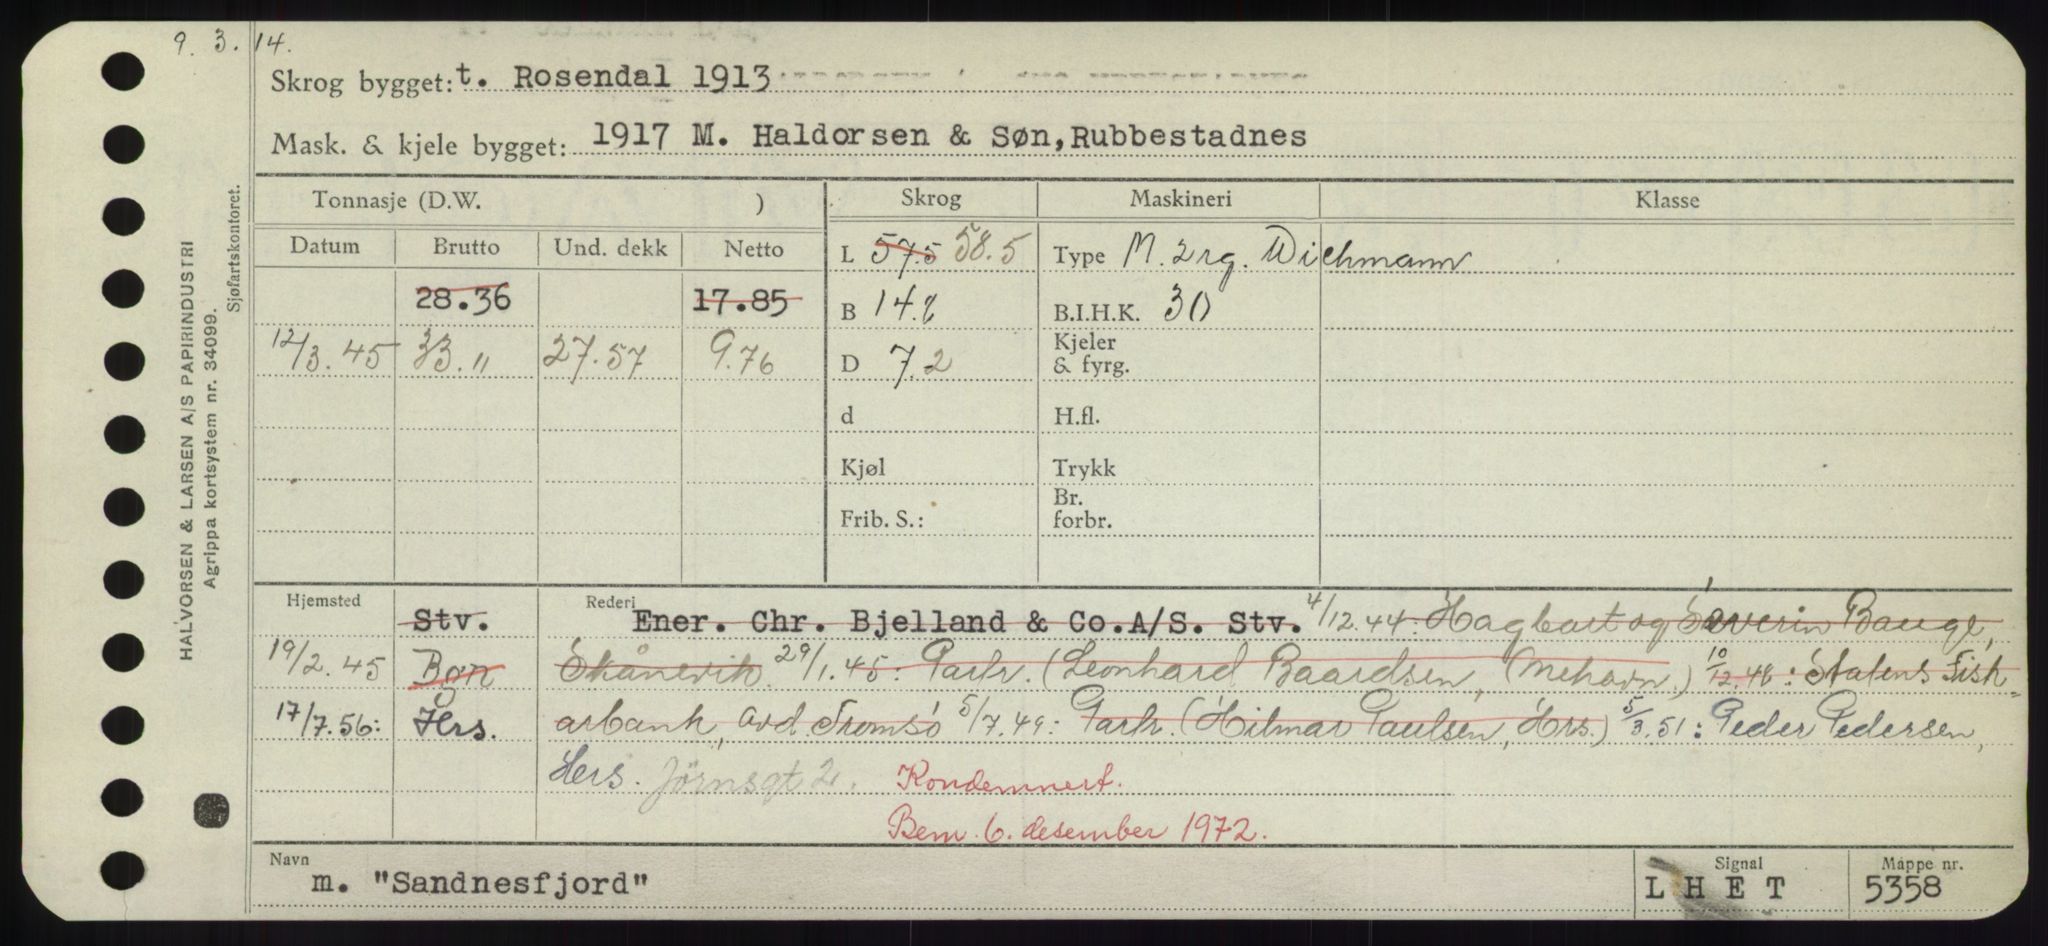 9. 3. 14.
Skrog bygget: t. Rosendal 1913
Mask. & kjele bygget: 1917 M. Haldorsen & Søn, Rubbestadnes
Tonnasje (D.W. ) Skrog Maskineri Klasse
Datum Brutto Und. dekk Netto L 57.5 58.5 Type M. 2 rg. Wichmann
28.36 17.85 B 14.8 B.I.H.K. 30
12/3.45 33.11 27.57 9.76 D 7.2 Kjeler & fyrg.
d H.fl.
Kjøl Trykk
Frib. S.: Br. forbr.
Hjemsted Stv. Rederi Ener. Chr. Bjelland & Co.A/S. Stv. 4/12.44: Hagbart og Severin Bauge,
19/2.45 Bgn Skånevik 29/1.45: Partr. (Leonhard Baardsen, (Mehavn.) 10/12.48: Statens Fisk-
17/7.56: Hrs. arbank, avd. Tromsö 5/7.49: Partr. (Hilmar Paulsen, Hrs.) 5/3.51: Peder Pedersen,
Hers. Jörnsgt 2. Kondemnert.
Bem. 6. desember 1972.
Navn m. "Sandnesfjord" Signal L H E T Mappe nr. 5358
HALVORSEN & LARSEN A/S PAPIRINDUSTRI
Agrippa kortsystem nr. 34099.
Sjøfartskontoret.